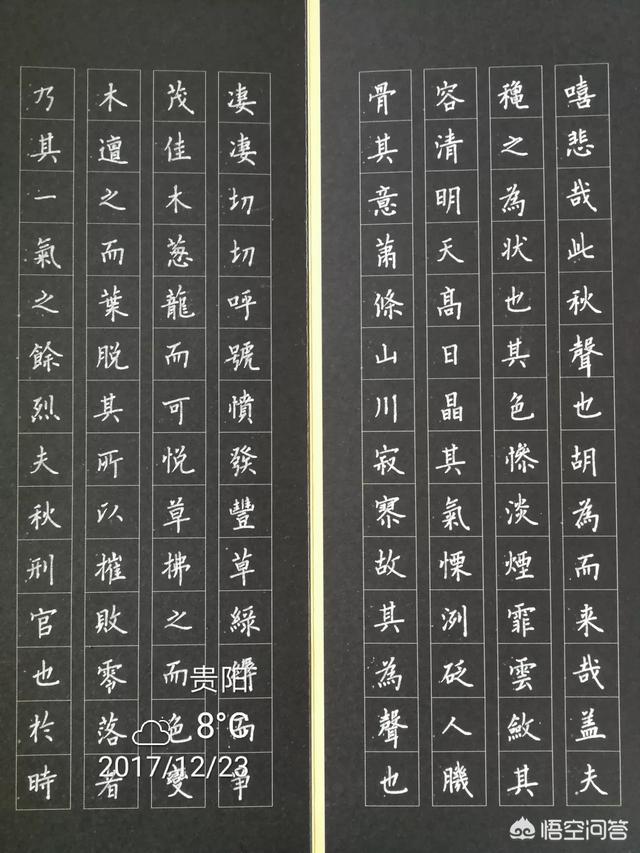 嘻悲哉此秋聲也胡為而来哉盖夫
穐之為狀也其色慘淡煙霏雲斂其
容清明天髙日晶其氣慄洌砭人
骨其意蕭條山川寂寥故其為聲也
凄凄切切呼號憤發豐草綠縟而爭
茂佳木葱龍而可悦草拂之而色變
木遭之而葉脱其所以摧敗零落者
乃其一氣之餘烈夫秋刑官也於時
贵阳
8°C
2017/12/23
悟空问答